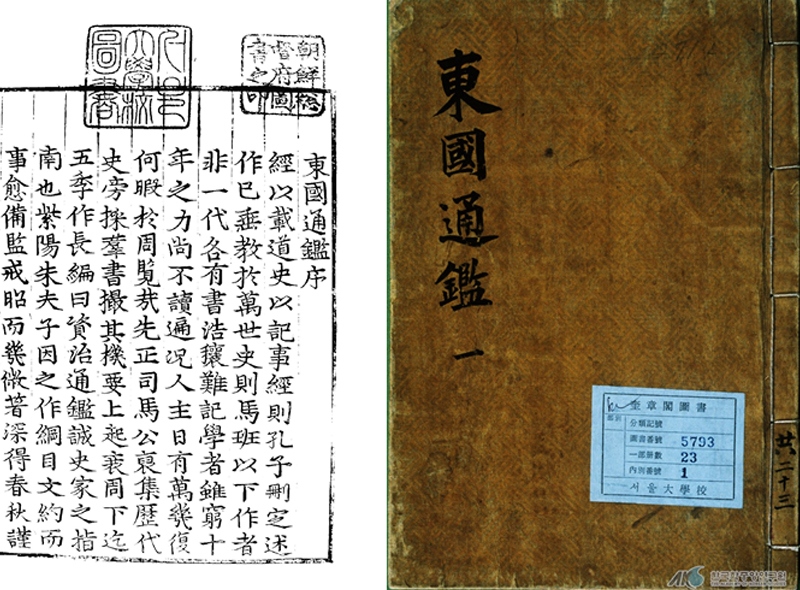 朝鮮總
督府圖
書之印
서울
大學校
圖書
東國通鑑序
經以載道史以記事經則孔子刪定述
作已垂教於萬世史則馬班以下作者
非一代各有書浩穰難記學者雖窮十
年之力尚不讀遍况人主日有萬幾復
何暇於周覧㢤先正司馬公裒集歷代
史旁採羣書撮其機要上起衰周下迄
五季作長編曰資治通鑑誠史家之指
南也紫陽朱夫子因之作綱目文約而
事愈備監戒昭而幾微著深得春秋謹
東國通鑑 一
奎章閣圖書
分類記號
圖書番號 5793
一部冊數 23
內別番號 1
서울大學校
共二十三
한국학중앙연구원